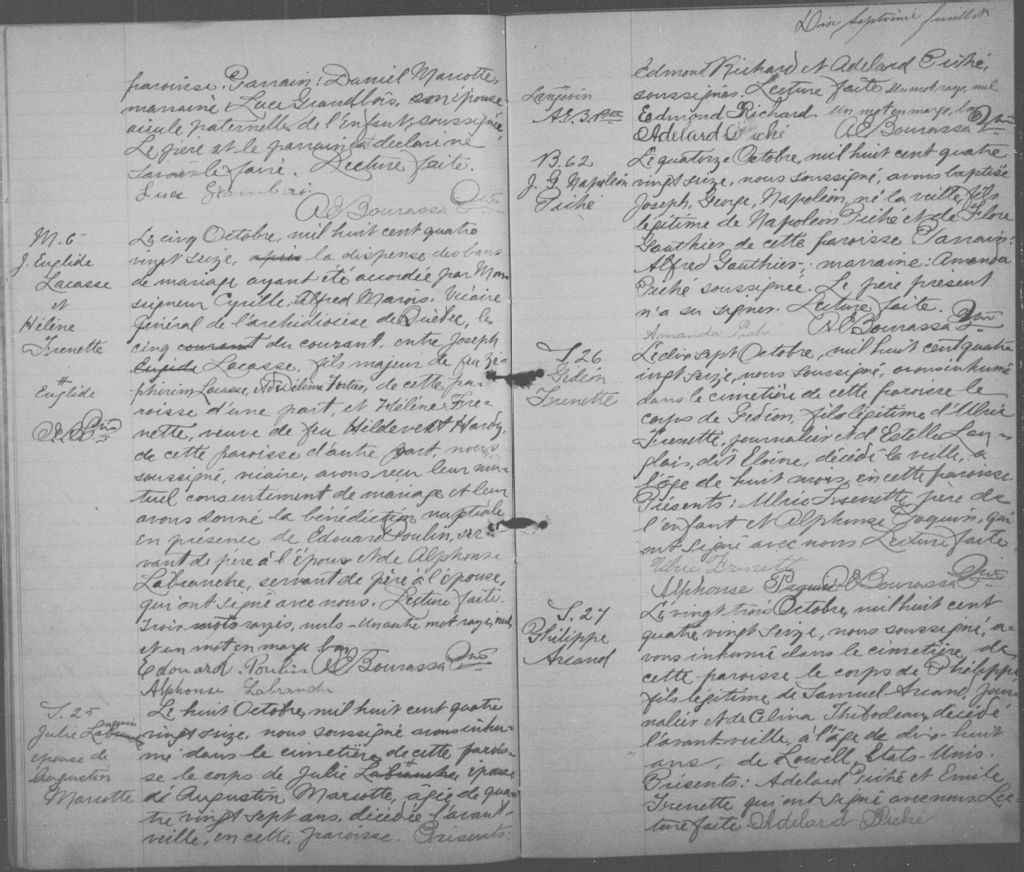 paroisse. Parrain: Daniel Marcotte,
marraine Luce Grandbois, son épouse
aieule paternelle de l'enfant, soussignée.
Le père et le parrain ont déclaré ne
savoir le faire. Lecture faite.
Luce
A E Bourassa Ptre
M. 6
J. Euclide
Lacasse
et
Hélène
Frenette
Euclide
Le cinq Octobre, mil huit cent quatre
vingt seize, après la dispense des bans
de mariage ayant été accordée par Mon
seigneur Cyrille Alfred Marois, Vicaire
général de l'archidiocèse de Québec, le
cinq courant du courant, entre Joseph
Lacasse, fils majeur de feu Zé-
phirin Lacasse, Délina Fortier, de cette pa-
roisse d'une part, et Hélène Fre-
nette, veuve de feu Hildevert Hardy,
de cette paroisse d'autre part, nous
soussigné, vicaire, avons reçu leur mu-
tuel consentement de mariage et leur
avons donné la bénédiction nuptiale
en présence de Edouard Poulin, ser-
vant de père à l'époux et de Alphonse
Labranche, servant de père à l'épouse,
qui ont signé avec nous. Lecture faite.
Trois mots rayés, nuls - Un autre mot rayé, nul
et un mot en marge bon
Edouard Poulin A E Bourassa Ptre
Alphonse Labranche
S. 25
Julie
épouse de
Augustin
Marcotte
Le huit Octobre, mil huit cent quatre
vingt seize, nous soussigné avons inhu-
mé dans le cimetière de cette parois-
se le corps de Julie Labranche, épouse
de Augustin Marcotte, âgée de qua-
tre vingt sept ans, décédée l'avant-
veille, en cette paroisse. Présents:
Dix septième feuillet
Edmond Richard et Adelard Piché,
soussignés. Lecture faite. Un mot rayé, nul
Langevin
A.E.B. Ptre
Edmond Richard. Un mot en marge, bon
Adelard Piché A E Bourassa Ptre
B. 62
J. G. Napoléon
Piché
Le quatorze Octobre, mil huit cent quatre
vingt seize, nous soussigné, avons baptisé
Joseph, George, Napoléon, né la veille, fils
légitime de Napoléon Piché et de Flore
Gauthier, de cette paroisse. Parrain:
Alfred Gauthier; marraine: Amanda
Piché soussignée. Le père présent
n'a su signer. Lecture faite.
Amanda Piché A E Bourassa Ptre
S. 26
Gédéon
Frenette
Le dix sept Octobre, mil huit cent quatre
vingt seize, nous soussigné, avons inhumé
dans le cimetière de cette paroisse le
corps de Gédéon, fils légitime d'Ulric
Frenette, journalier et d'Estelle Lan-
glais, dit Eloïne, décédé la veille, à
l'âge de huit mois, en cette paroisse.
Présents: Ulric Frenette, père de
l'enfant et Alphonse Paquin, qui
ont signé avec nous. Lecture faite.
Ulric Frenette
Alphonse Paquin A E Bourassa Ptre
S. 27
Philippe
Arcand
Le vingt trois Octobre, mil huit cent
quatre vingt seize, nous soussigné, a-
vons inhumé dans le cimetière, de
cette paroisse le corps de Philippe
fils légitime de Samuel Arcand, jour-
nalier et de Célina Thibodeau, décédé
l'avant veille, à l'âge de dix-huit
ans, de Lowell, Etats-Unis.
Présents: Adelard Piché et Emile
Frenette qui ont signé avec nous. Lec-
ture faite. Adelard Piché